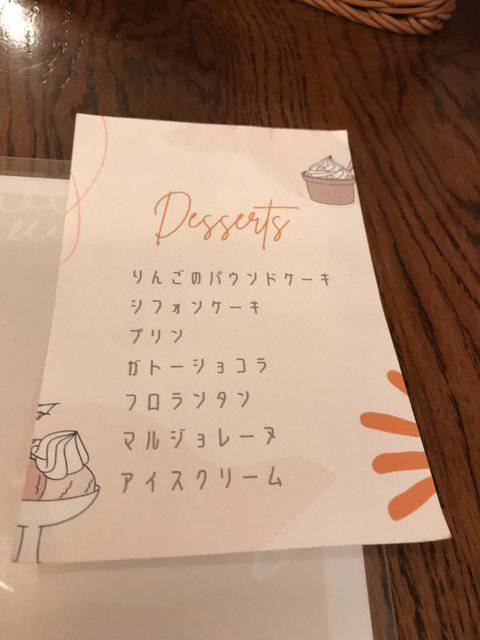 Desserts
りんごのパウンドケーキ
シフォンケーキ
プリン
ガトーショコラ
フロランタン
マルジョレーヌ
アイスクリーム